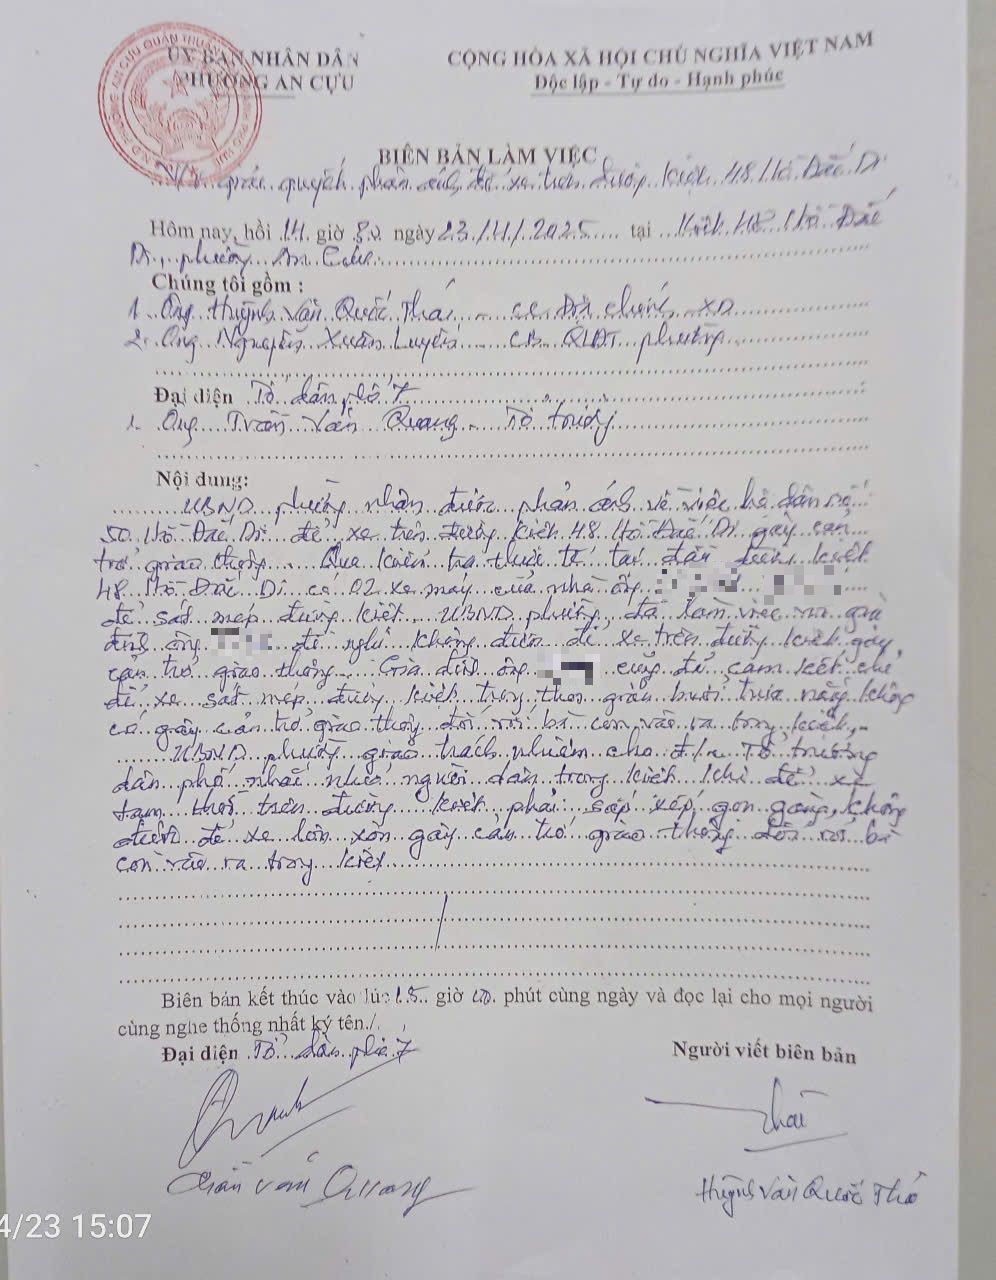 ỦY BAN NHÂN DÂN
PHƯỜNG AN CỰU
CỘNG HÒA XÃ HỘI CHỦ NGHĨA VIỆT NAM
Độc lập - Tự do - Hạnh phúc
BIÊN BẢN LÀM VIỆC
V/v giải quyết phản ánh để xe trên đường kiệt 48 Hồ Đắc Di
Hôm nay, hồi 14 giờ 30 ngày 23/4/2025 tại kiệt 48 Hồ Đắc
Di, phường An Cựu
Chúng tôi gồm :
1. Ông Huỳnh Văn Quốc Thái - CC Địa chính XD
2. Ông Nguyễn Xuân Luyến CB QLĐT phường
Đại diện Tổ dân phố 7
1. Ông Trần Văn Quang Tổ trưởng
Nội dung:
UBND phường nhận được phản ánh về việc hộ dân số
50 Hồ Đắc Di để xe trên đường kiệt 48 Hồ Đắc Di gây cản
trở giao thông. Qua kiểm tra thực tế tại đầu đường kiệt
48 Hồ Đắc Di có 02 xe máy của nhà ông
để sát mép đường kiệt. UBND phường đã làm việc với gia
đình ông đề nghị không được để xe trên đường kiệt gây
cản trở giao thông. Gia đình ông cũng đã cam kết chỉ
để xe sát mép đường kiệt trong thời gian buổi trưa nắng không
có gây cản trở giao thông đối với bà con vào ra trong kiệt.
UBND phường giao trách nhiệm cho đ/c Tổ trưởng
dân phố nhắc nhở người dân trong kiệt khi để xe
tạm thời trên đường kiệt phải sắp xếp gọn gàng, không
được để xe lộn xộn gây cản trở giao thông đối với bà
con vào ra trong kiệt
Biên bản kết thúc vào lúc 15 giờ 00 phút cùng ngày và đọc lại cho mọi người
cùng nghe thống nhất ký tên./.
Đại diện Tổ dân phố 7
Người viết biên bản
Thái
Trần Văn Quang
Huỳnh Văn Quốc Thái
4/23 15:07